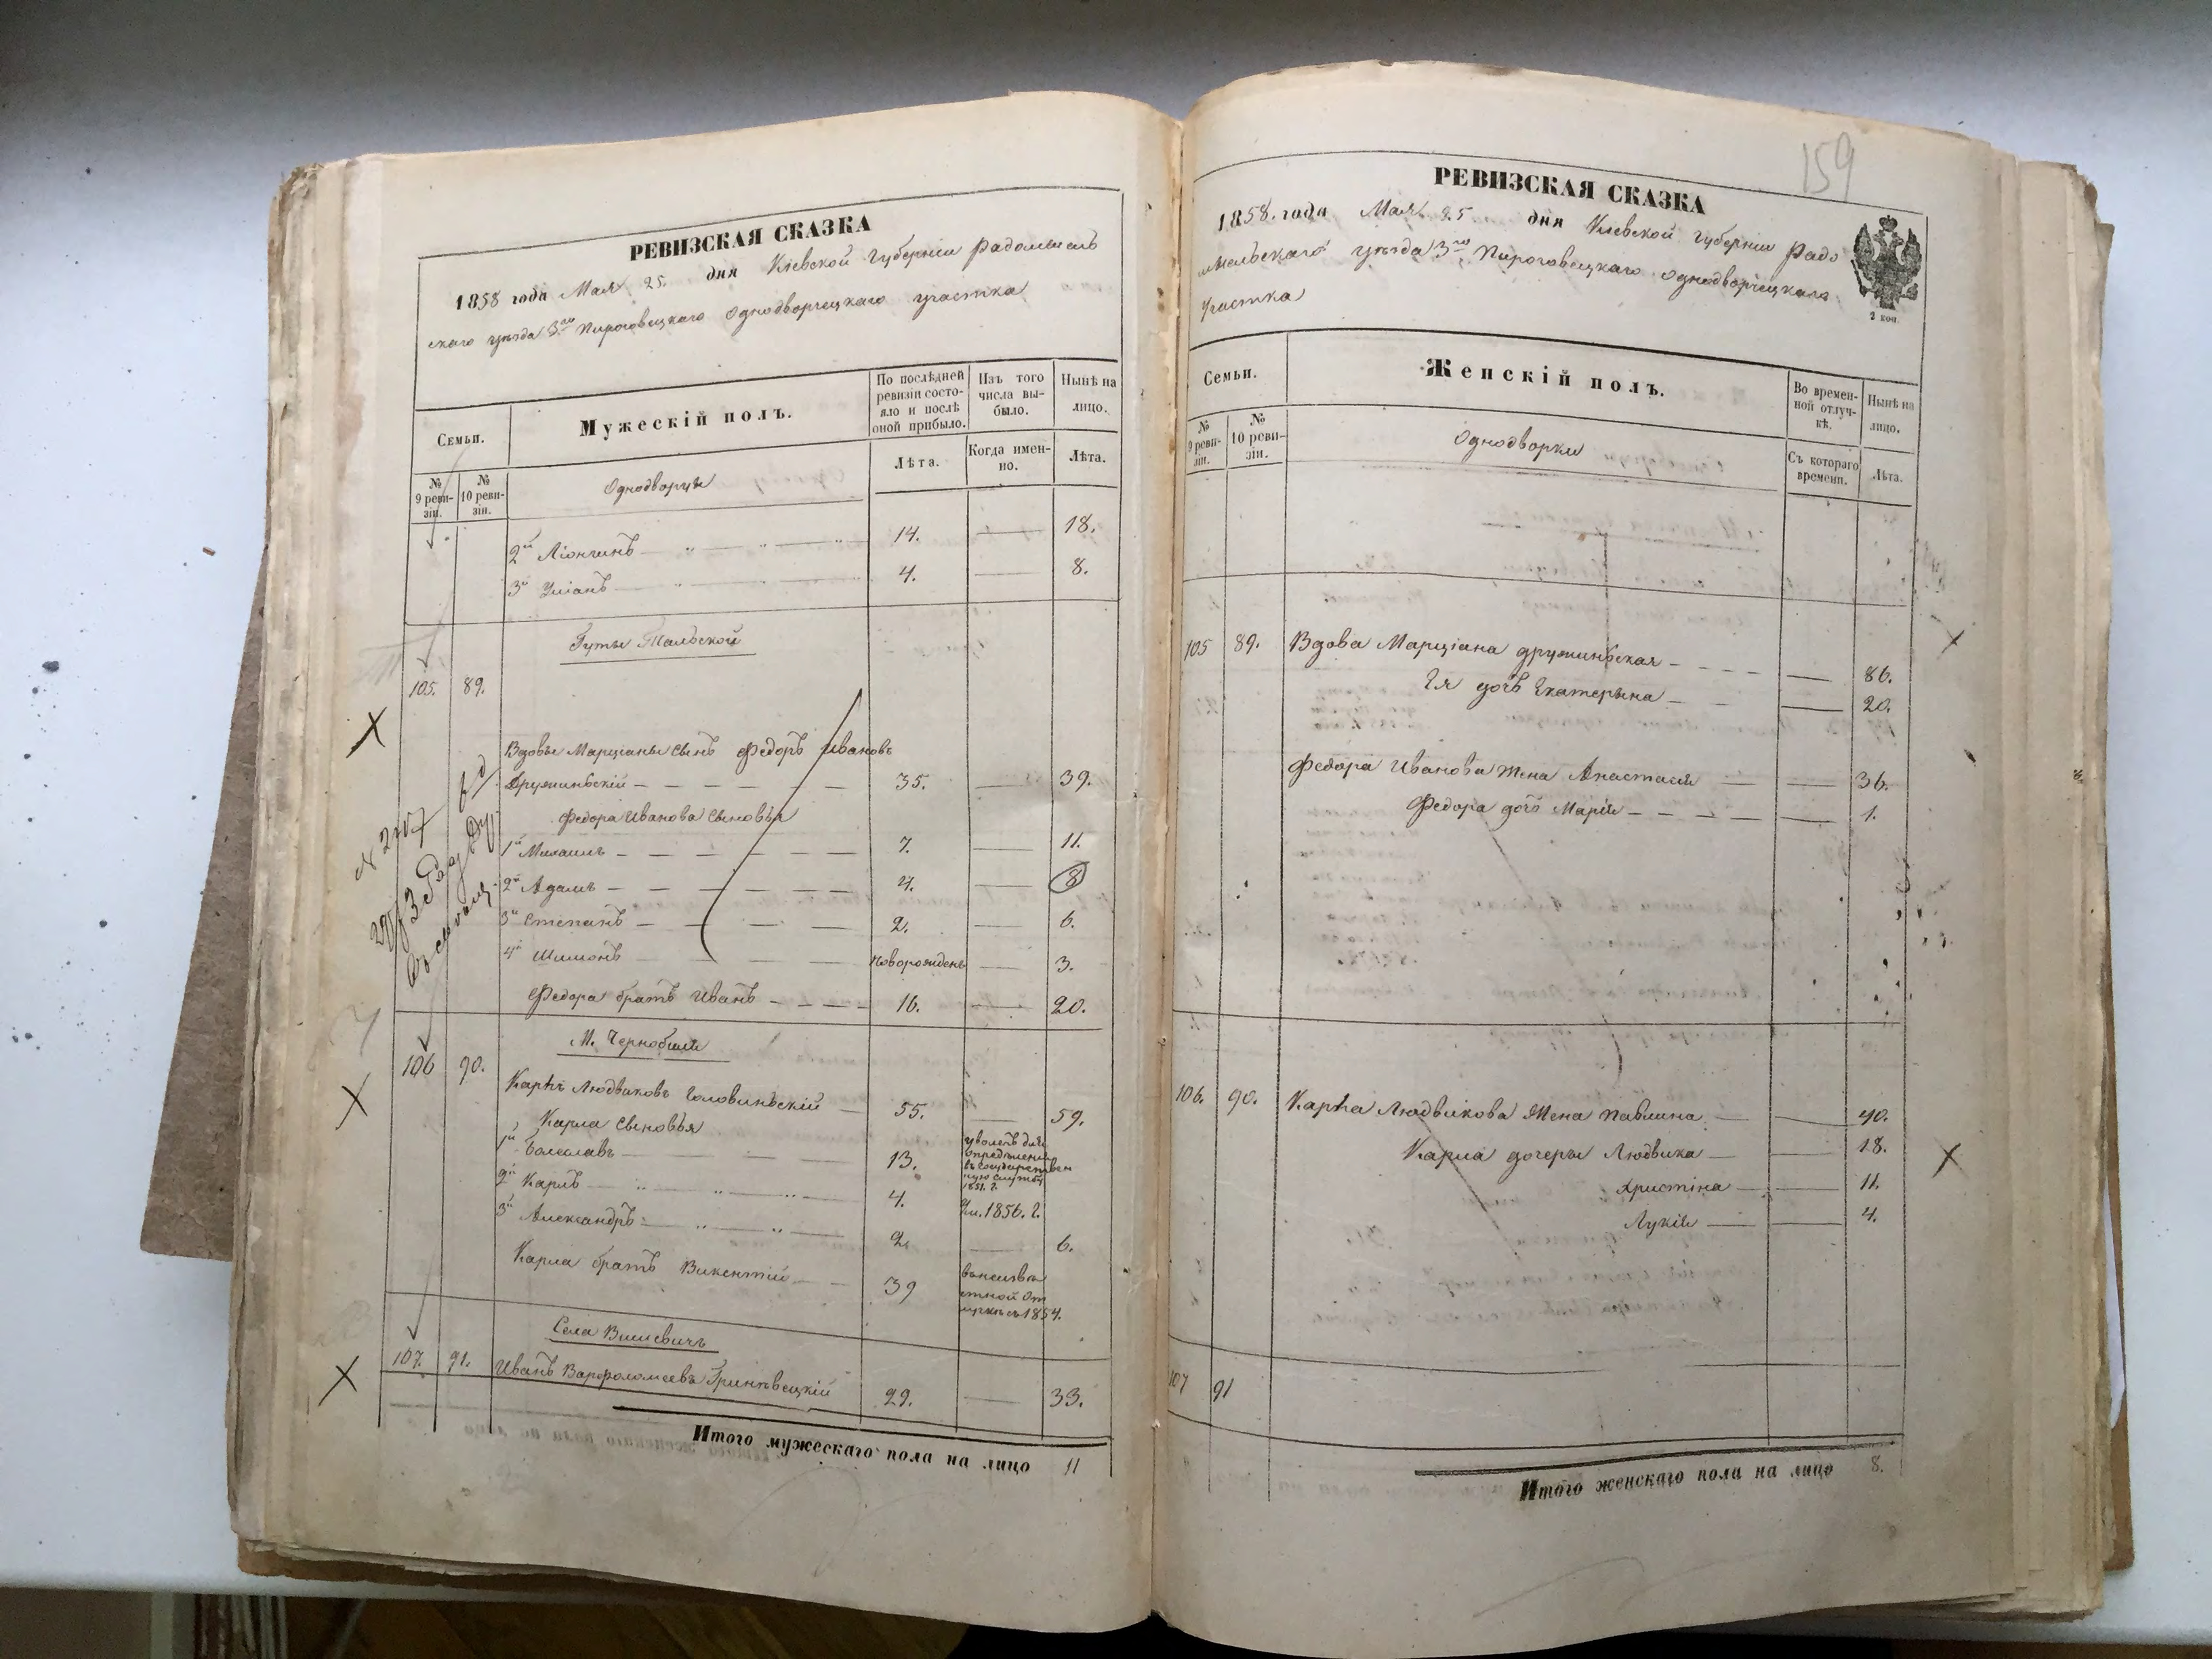 РЕВИЗСКАЯ СКАЗКА
1858 года Мая 25. дня Кіевской Губерніи Радомысль
скаго уѣзда 3го Пироговецкаго Однодворческаго участка
Семьи.
Мужескій полъ.
По послѣдней ревизіи состояло и послѣ оной прибыло.
Изъ того числа выбыло.
Нынѣ на лицо.
№ 9 ревизіи.
№ 10 ревизіи.
Однодворцы
Лѣта.
Когда именно.
Лѣта.
2й Ліонгинъ 14. 18.
3й Уліанъ 4. 8.
Гуты Тальской
105. 89.
Вдовы Марціаны сынъ Федоръ Ивановъ
Дружинскій 35. 39.
Федора Иванова сыновья
1й Михаилъ 7. 11.
2й Адамъ 4. 8
3й Степанъ 2. 6.
4й Шимонъ новорожденъ 3.
Федора братъ Иванъ 16. 20.
М. Чернобыля
106 90.
Карлъ Людвиковъ Головинскій 55. 59.
Карла сыновья
1й Болеславъ 13. уволенъ для опредѣленія въ государственную службу 1851. г.
2й Карлъ 4. Ум. 1856. г.
3й Александръ 2. 6.
Карла братъ Викентій 39 въ неизвѣстной отлучкѣ съ 1854.
Села Вишевичъ
107. 91. Иванъ Варфоломеевъ Гриневецкій 29. 33.
Итого мужескаго пола на лицо 11
159
РЕВИЗСКАЯ СКАЗКА
1858. года Мая 25 дня Кіевской Губерніи Радо
мысльскаго уѣзда 3го Пироговецкаго Однодворческаго
Участка
2 коп.
Семьи.
Женскій полъ.
Во временной отлучкѣ.
Нынѣ на лицо.
№ 9 ревизіи.
№ 10 ревизіи.
Однодворки
Съ котораго времени.
Лѣта.
105 89. Вдова Марціана Дружинская 86.
2я дочь Екатерына 20.
Федора Иванова жена Анастасія 36.
Федора дочь Марія 1.
106. 90. Карла Людвикова жена Павлина 40.
Карла дочеры Людвика 18.
Христіна 11.
Лукія 4.
107 91
Итого женскаго пола на лицо 8.